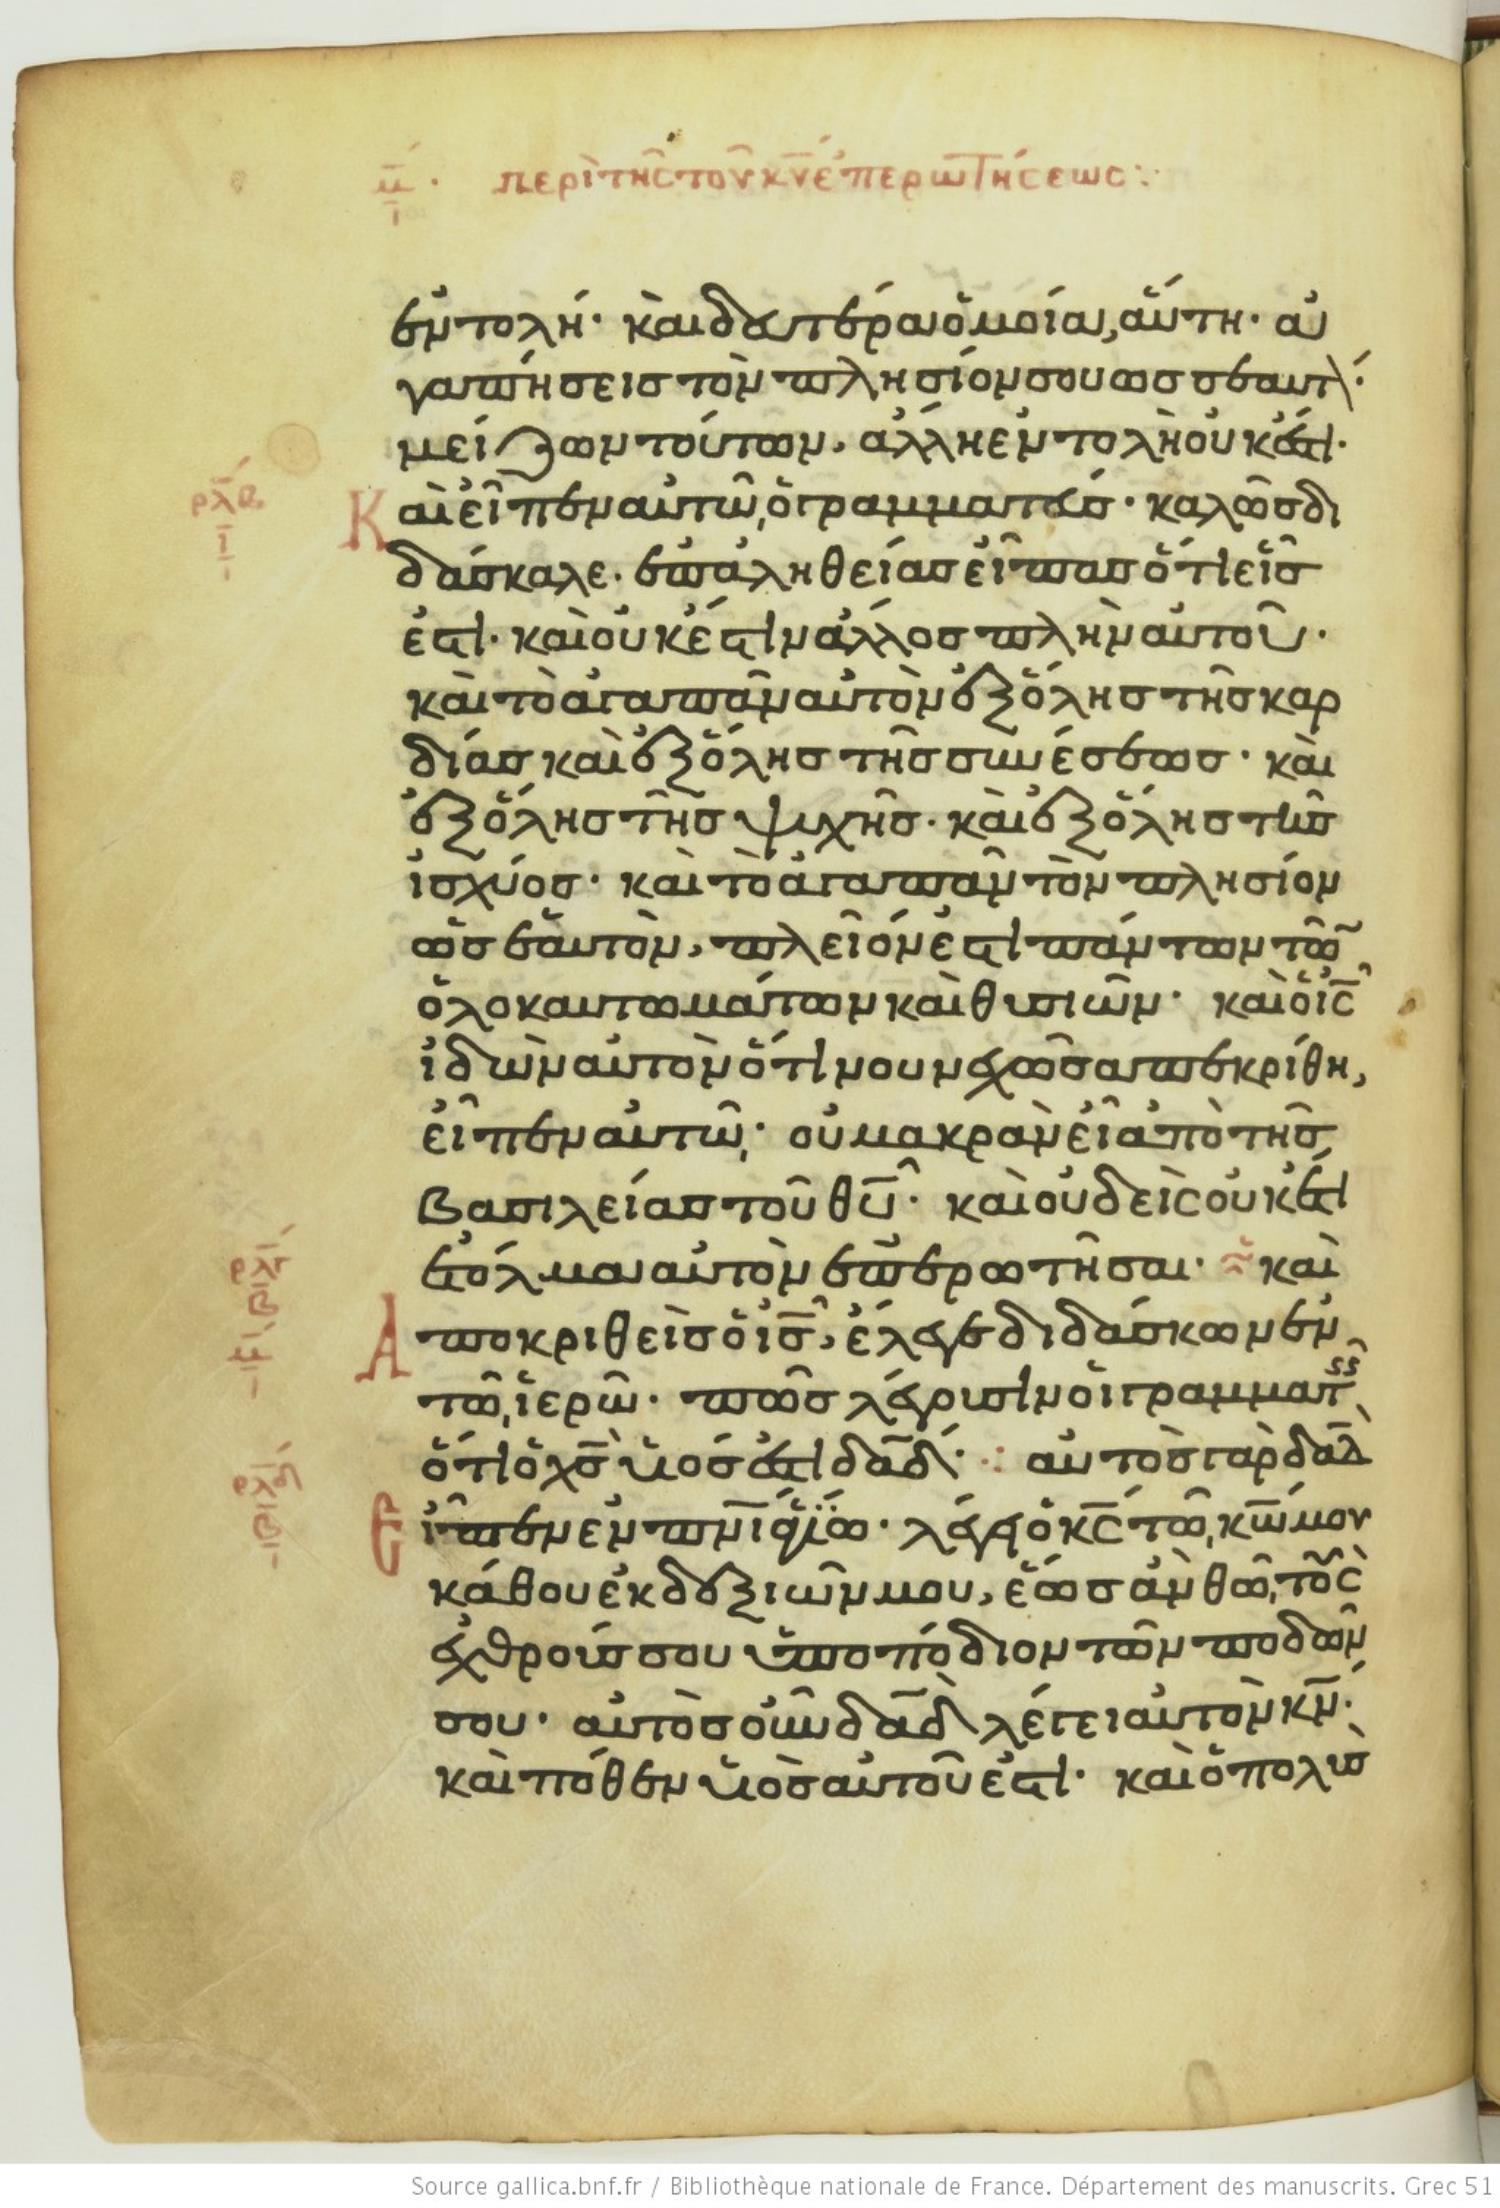 μ̅. περὶ τῆς τοῦ κ̅υ̅ ἐπερωτήσεως:
ἐντολή· καὶ δευτέρα ὁμοία, αὕτη· ἀ
γαπήσεις τὸν πλησίον σου ὡς σεαυτ́·
μείζων τούτων, ἄλλη ἐντολὴ οὐκ ἔστι·
ρλβ
ι
Καὶ εἶπεν αὐτῶ, ὁ γραμματεύς· καλῶς δι
δάσκαλε· ἐπ ἀληθείας εἶπας ὅτι εἷς
ἐστι· καὶ οὐκ ἔστιν ἄλλος πλὴν αὐτοῦ·
καὶ τὸ ἀγαπᾶν αὐτὸν ἐξ ὅλης τῆς καρ
δίας καὶ ἐξ ὅλης τῆς συνέσεως· καὶ
ἐξ ὅλης τῆς ψυχῆς· καὶ ἐξ ὅλης τῆς
ἰσχύος· καὶ τὸ ἀγαπᾶν τὸν πλησίον
ὡς ἑαυτὸν, πλεῖόν ἐστι πάντων τῶ̅
ὁλοκαυτωμάτων καὶ θυσιῶν· καὶ ὁ ι̅ς̅
ἰδὼν αὐτὸν ὅτι νουνεχῶς ἀπεκρίθη,
εἶπεν αὐτῶ,· οὐ μακρὰν εἶ ἀπὸ τῆς
βασιλείας τοῦ θ̅υ̅· καὶ οὐδεὶς οὐκ ἔτι
ἐτόλμα αὐτὸν ἐπερωτῆσαι· καὶ
Ἀποκριθεὶς ὁ ι̅ς̅, ἔλεγε διδάσκων ἐν
τῶ, ἱερῶ· πῶς λέγουσιν οἱ γραμματ
ὅτι ὁ χ̅ς̅ υἱός ἐστι δα̅δ̅· αὐτὸς γὰρ δα̅δ̅
Εἶπεν ἐν π̅ν̅ι̅ ἁγίω· λέγει ὁ κ̅ς̅ τῶ, κ̅ω̅ μου
κάθου ἐκ δεξιῶν μου, ἕως ἂν θῶ, τοὺς
ἐχθρούς σου ὑποπόδιον τῶν ποδῶν
σου· αὐτὸς οὖν δα̅δ̅ λέγει αὐτὸν κ̅ν̅·
καὶ πόθεν υἱὸς αὐτοῦ ἐστι· καὶ ὁ πολὺς
Source gallica.bnf.fr / Bibliothèque nationale de France. Département des manuscrits. Grec 51